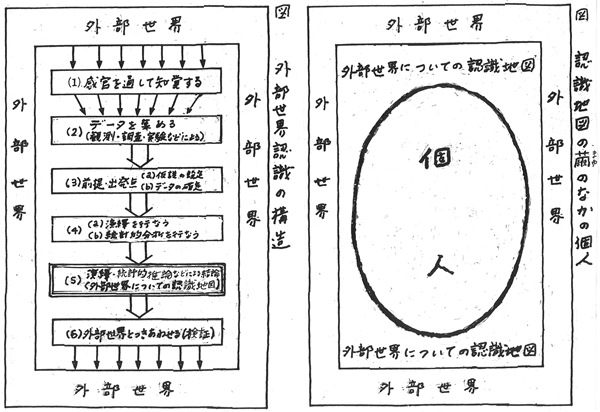 図 外部世界認識の構造
外部世界
外部世界
外部世界
(1) 感官を通して知覚する
(2) データを集める
(観測・調査・実験などによる)
(3) 前提・出発点 (a) 仮説の設定
(b) データの確定
(4) (a) 演繹を行なう
(b) 統計的分析を行なう
(5) 演繹・統計的推論などによる結論
(外部世界についての認識地図)
(6) 外部世界とつきあわせる(検証)
外部世界
図 認識地図の繭のなかの個人
まゆ
外部世界
外部世界
外部世界
外部世界についての認識地図
個
人
外部世界についての認識地図
外部世界